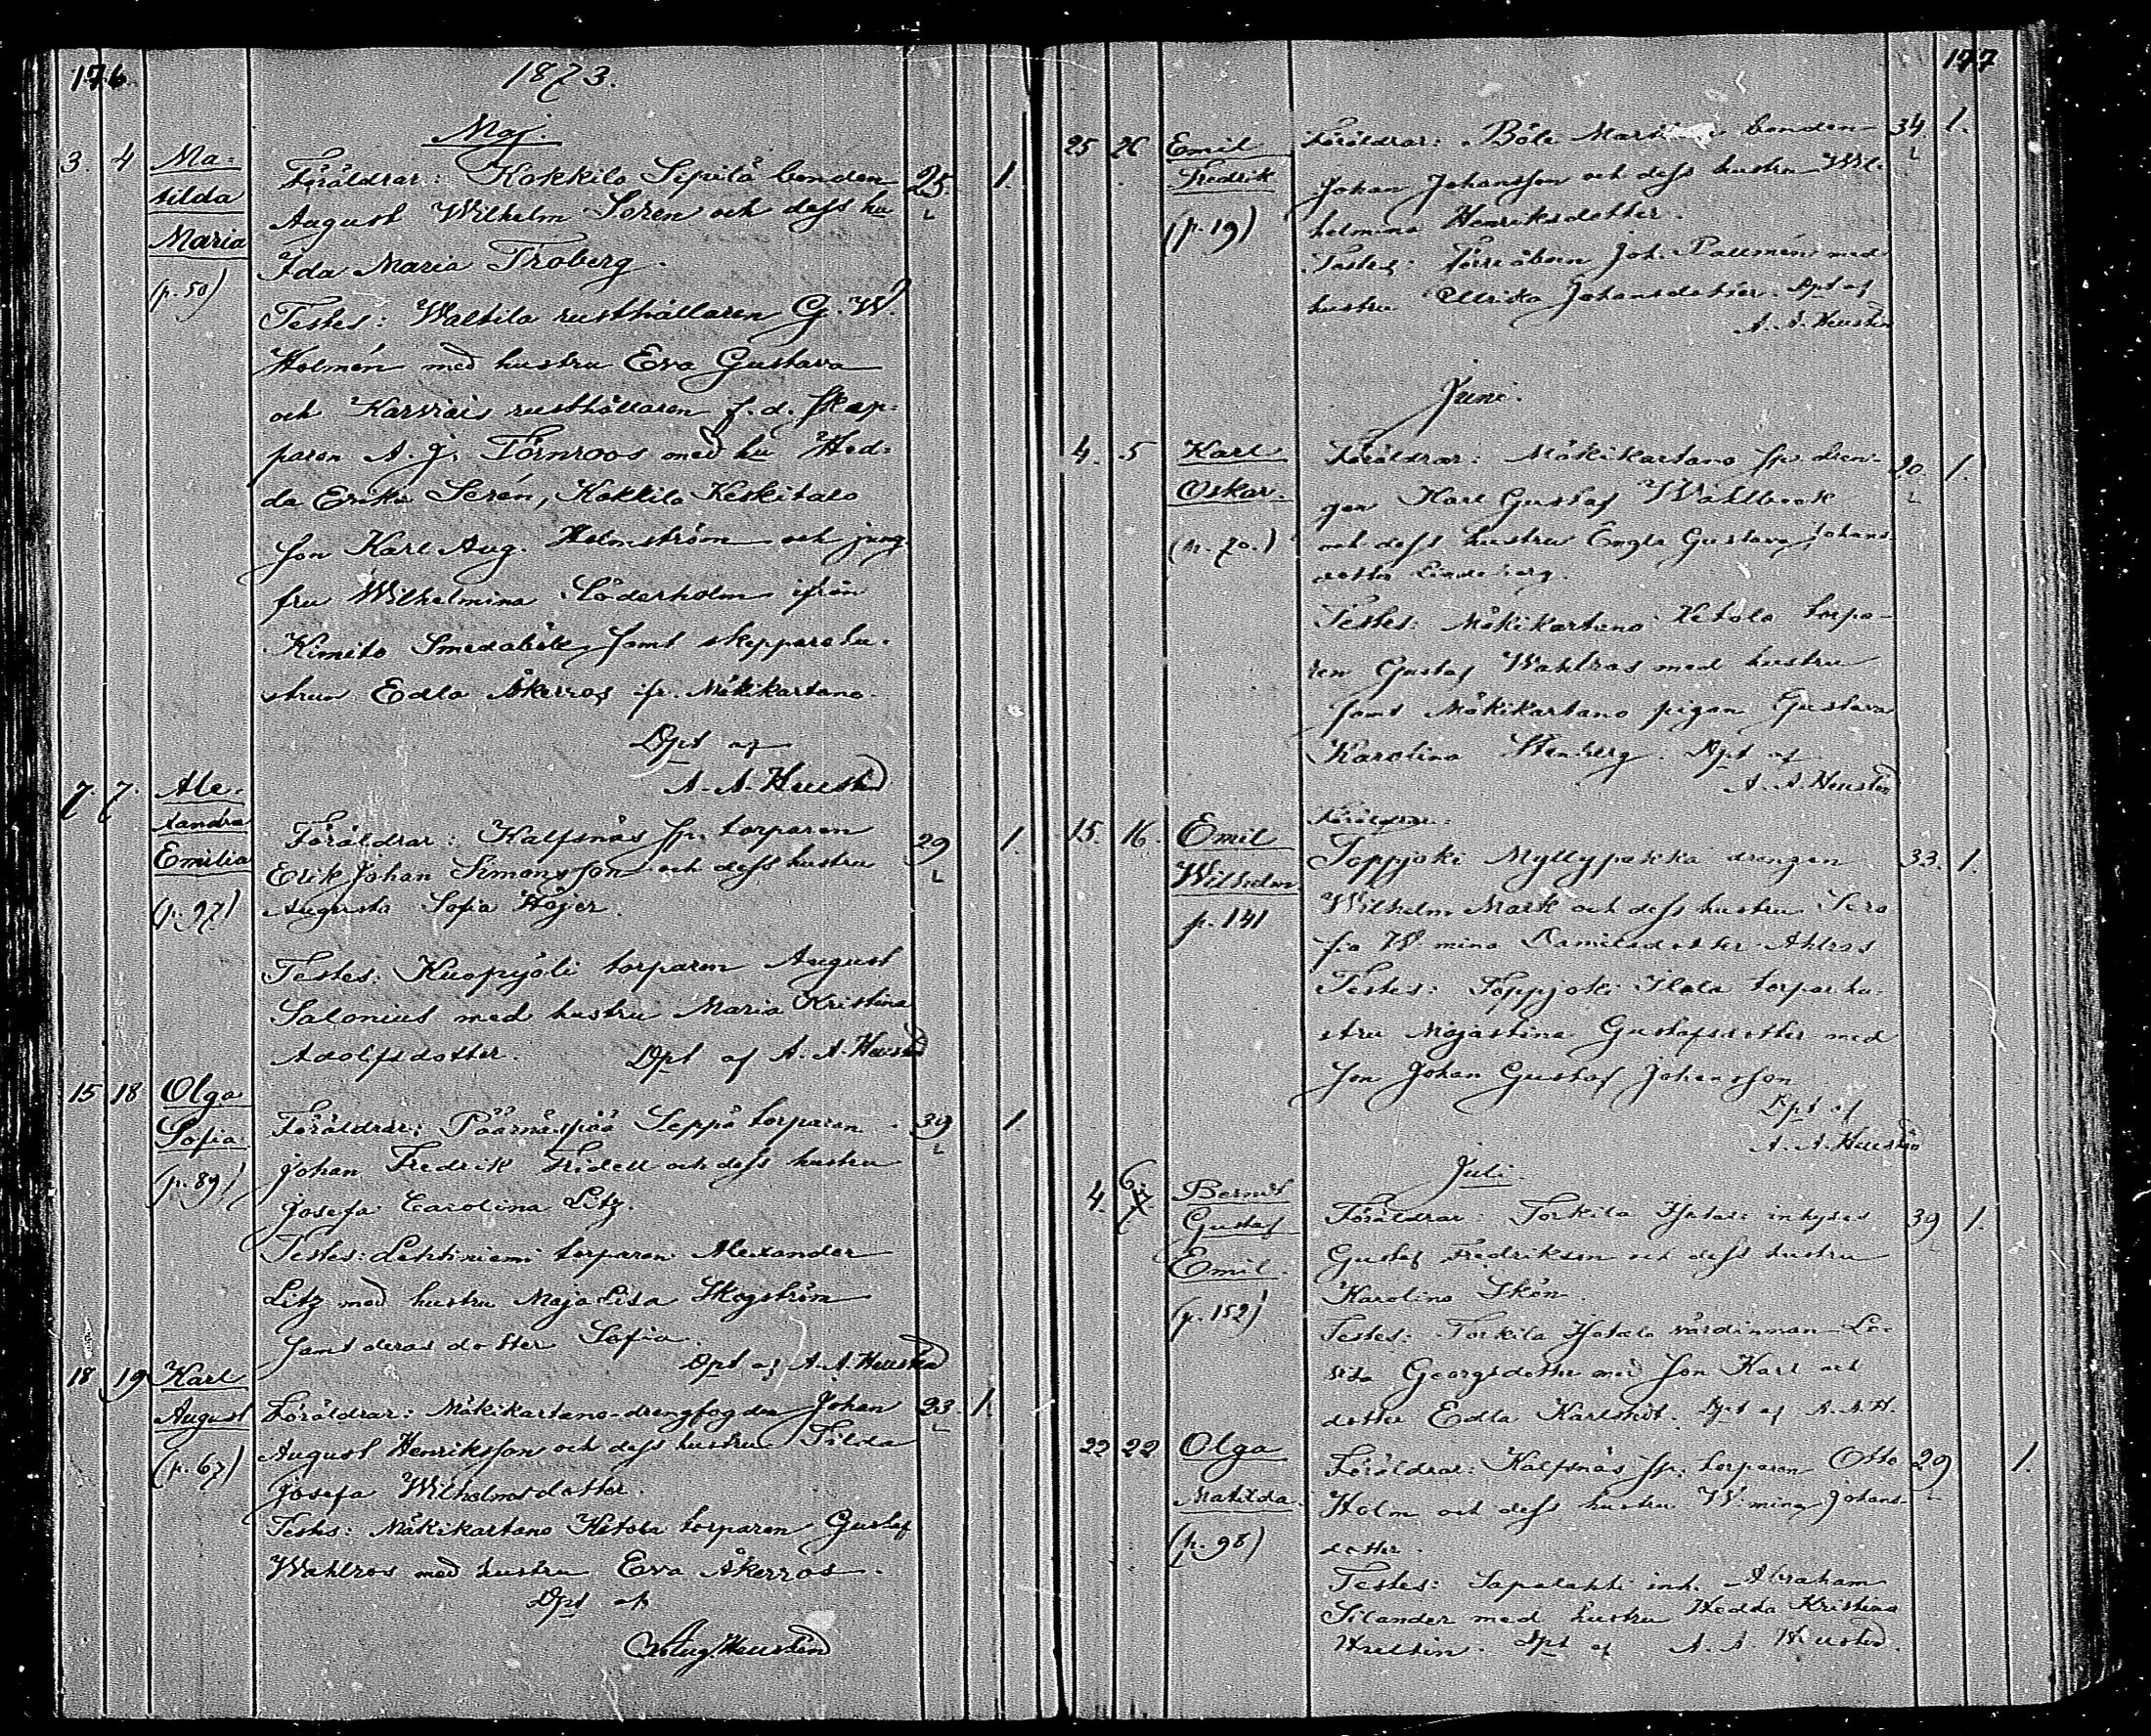 176.
1873.
Maj.
3. 4 Ma-
tilda
Maria
(p. 50)
Föräldrar: Kokkila Sipilä bonden 25 1.
August Wilhelm Seren och dess hu
Ida Maria Troberg.
Testes: Waltila rusthållaren G. W.
Holmén med hustru Eva Gustava
och Karviais rusthållaren f. d. skep-
paren A. J. Törnroos med hu Hed-
da Erika Serén, Kokkila Keskitalo
son Karl Aug. Helmström och jung
fru Wilhelmina Söderholm ifrån
Kimito Smedaböle samt skepparehu-
strun Edla Åkerros ifr. Mäkikartano.
Dpt af
A. A. Heurlin
7. 7. Ale-
xandra
Emilia
(p. 97)
Föräldrar: Kalfsnäs sp. torparen 29 1.
Erik Johan Simonsson och dess hustru
Augusta Sofia Höjer.
Testes: Kuopyöli torparen August
Salonius med hustru Maria Kristina
Adolfsdotter. Dpt af A. A. Heurlin
15 18 Olga
Sofia
(p. 89)
Föräldrar: Päärnäspää Seppä torparen 39 1.
Johan Fredrik Fridell och dess hustru
Josefa Carolina Litz.
Testes: Lehtiniemi torparen Alexander
Litz med hustru Maja Lisa Skogström
samt deras dotter Sofia.
Dpt af A. A. Heurlin
18 19 Karl
August
(p. 67)
Föräldrar: Mäkikartano drengfogden Johan 23. 1.
August Henriksson och dess hustru Tilda
Josefa Wilhelmsdotter.
Testes: Mäkikartano Ketola torparen Gustaf
Wahlros med hustru Eva Åkerros.
Dpt af
Aug. Heurlin
177
25 26 Emil
Fredrik
(p. 19)
Föräldrar: Böle bonden 34 1.
Johan Johansson och dess hustru Wil-
helmina Henriksdotter.
Testes: Joh. Pallmén med
hustru Ulrika Johansdotter. Dpt af
A. A. Heurlin
Juni.
4. 5 Karl
Oskar.
(p. 70.)
Föräldrar: Mäkikartano sp. dren- 20 1.
gen Karl Gustaf Wahlbeck
och dess hustru Engla Gustava Johans
dotter Lindeberg.
Testes: Mäkikartano Ketola torpa-
ren Gustaf Wahlros med hustru
samt Mäkikartano pigan Gustava
Karolina Stenberg. Dpt af
A. A. Heurlin
15. 16. Emil
Wilhelm
p. 141
Föräldrar:
Toppjoki Myllypakka drengen 33. 1.
Wilhelm Mark och dess hustru Sera
fia W-mina Danielsdotter Ahlros
Testes: Toppjoki Ilola torparehu-
stru Majastina Gustafsdotter med
son Johan Gustaf Johansson
Dpt af
A. A. Heurlin
Juli.
4. 6 Berndt
Gustaf
Emil.
(p. 152)
Föräldrar: Torkila inhyses 39 1.
Gustaf Fredriksson och dess hustru
Karolina Skön.
Testes: Torkila värdinnan Lo-
visa Georgsdotter med son Karl och
dotter Edla Karlsdot. Dpt af A. A. H.
22 22 Olga
Matilda.
(p. 98)
Föräldrar: Kalfsnäs sp. torparen Otto 29 1.
Holm och dess hustru W-mina Johans-
dotter.
Testes: Sapalahti inh. Abraham
Silander med hustru Hedda Kristina
Hultin. Dpt af A. A. Heurlin.